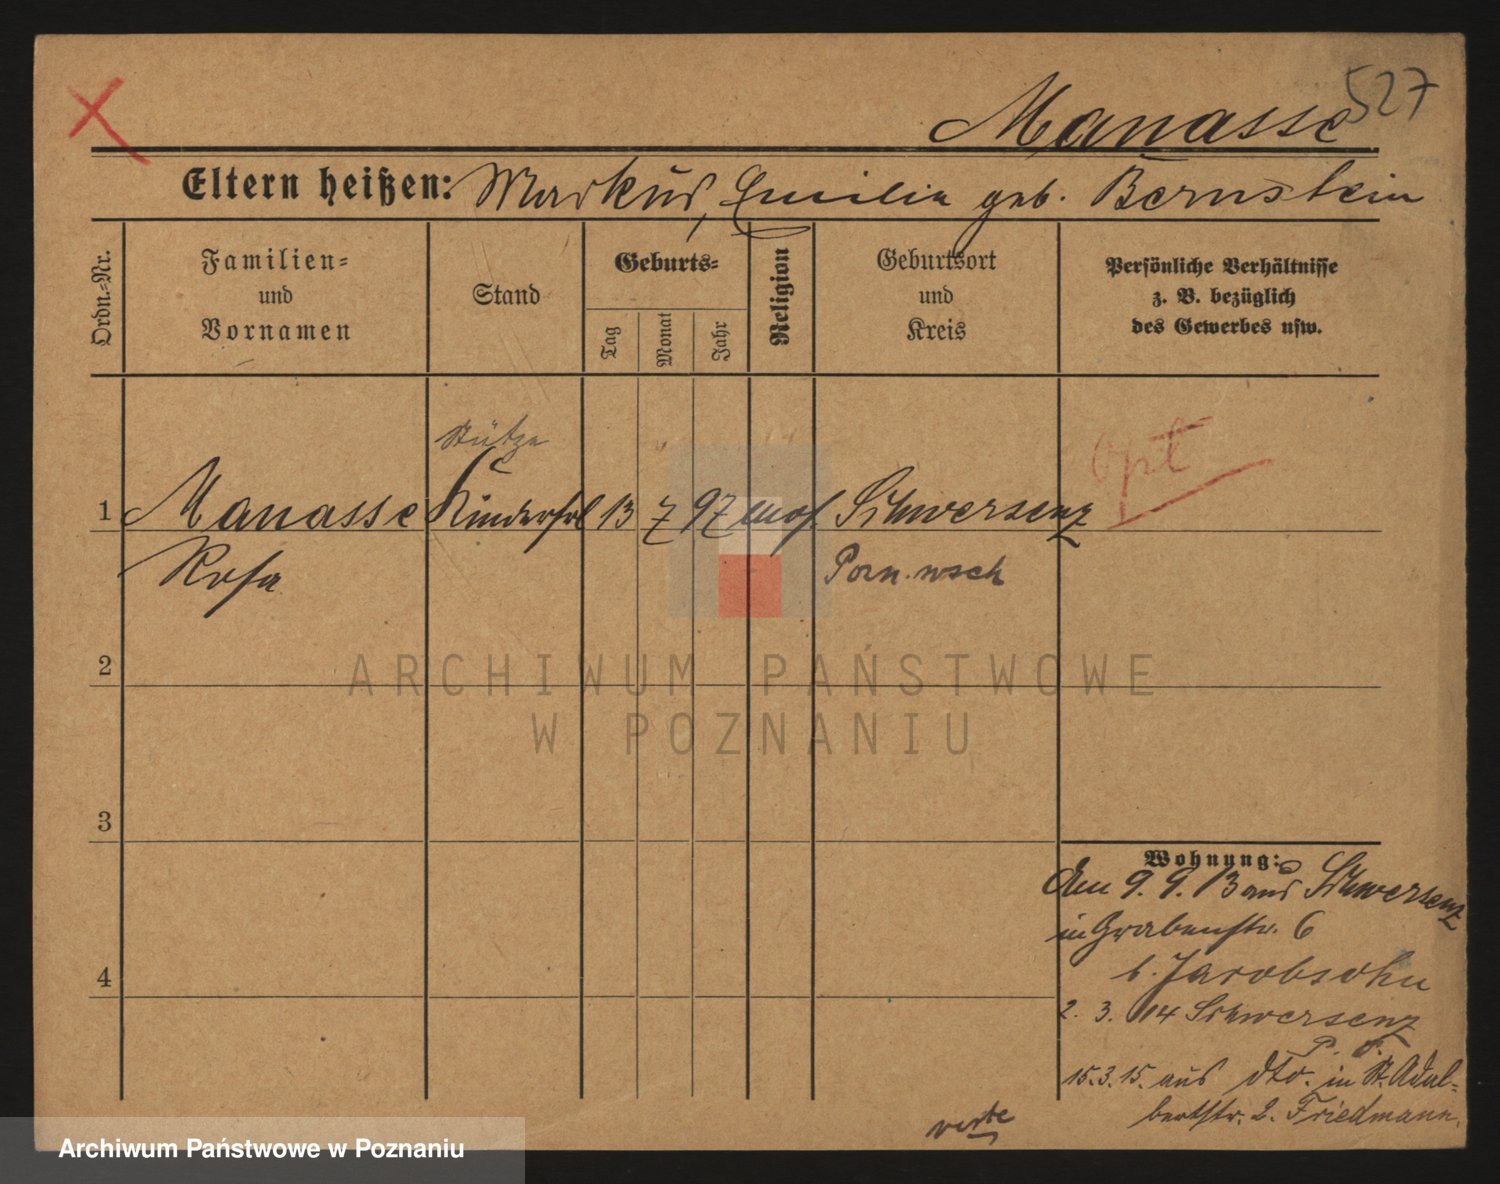 527
Manasse
Eltern heißen: Markus, Emilie geb. Bernstein
Ordn.-Nr.
Familien-
und
Vornamen
Stand
Geburts-
Tag
Monat
Jahr
Religion
Geburtsort
und
Kreis
Persönliche Verhältnisse
z. B. bezüglich
des Gewerbes usw.
Stütze
Opt
1 Manasse Kinderfrl 13 7 97 mos. Schwersenz
Rosa
2
3
4
Wohnung:
Am 9. 9. 13 aus Schwersenz
in Grabenstr. 6
b. Jacobsohn
2. 3. 14 Schwersenz
P. O.
15.3.15. aus dto. in St. Adal-
bertstr. 2. Friedmann.
verte
ARCHIWUM PAŃSTWOWE
W POZNANIU
Archiwum Państwowe w Poznaniu